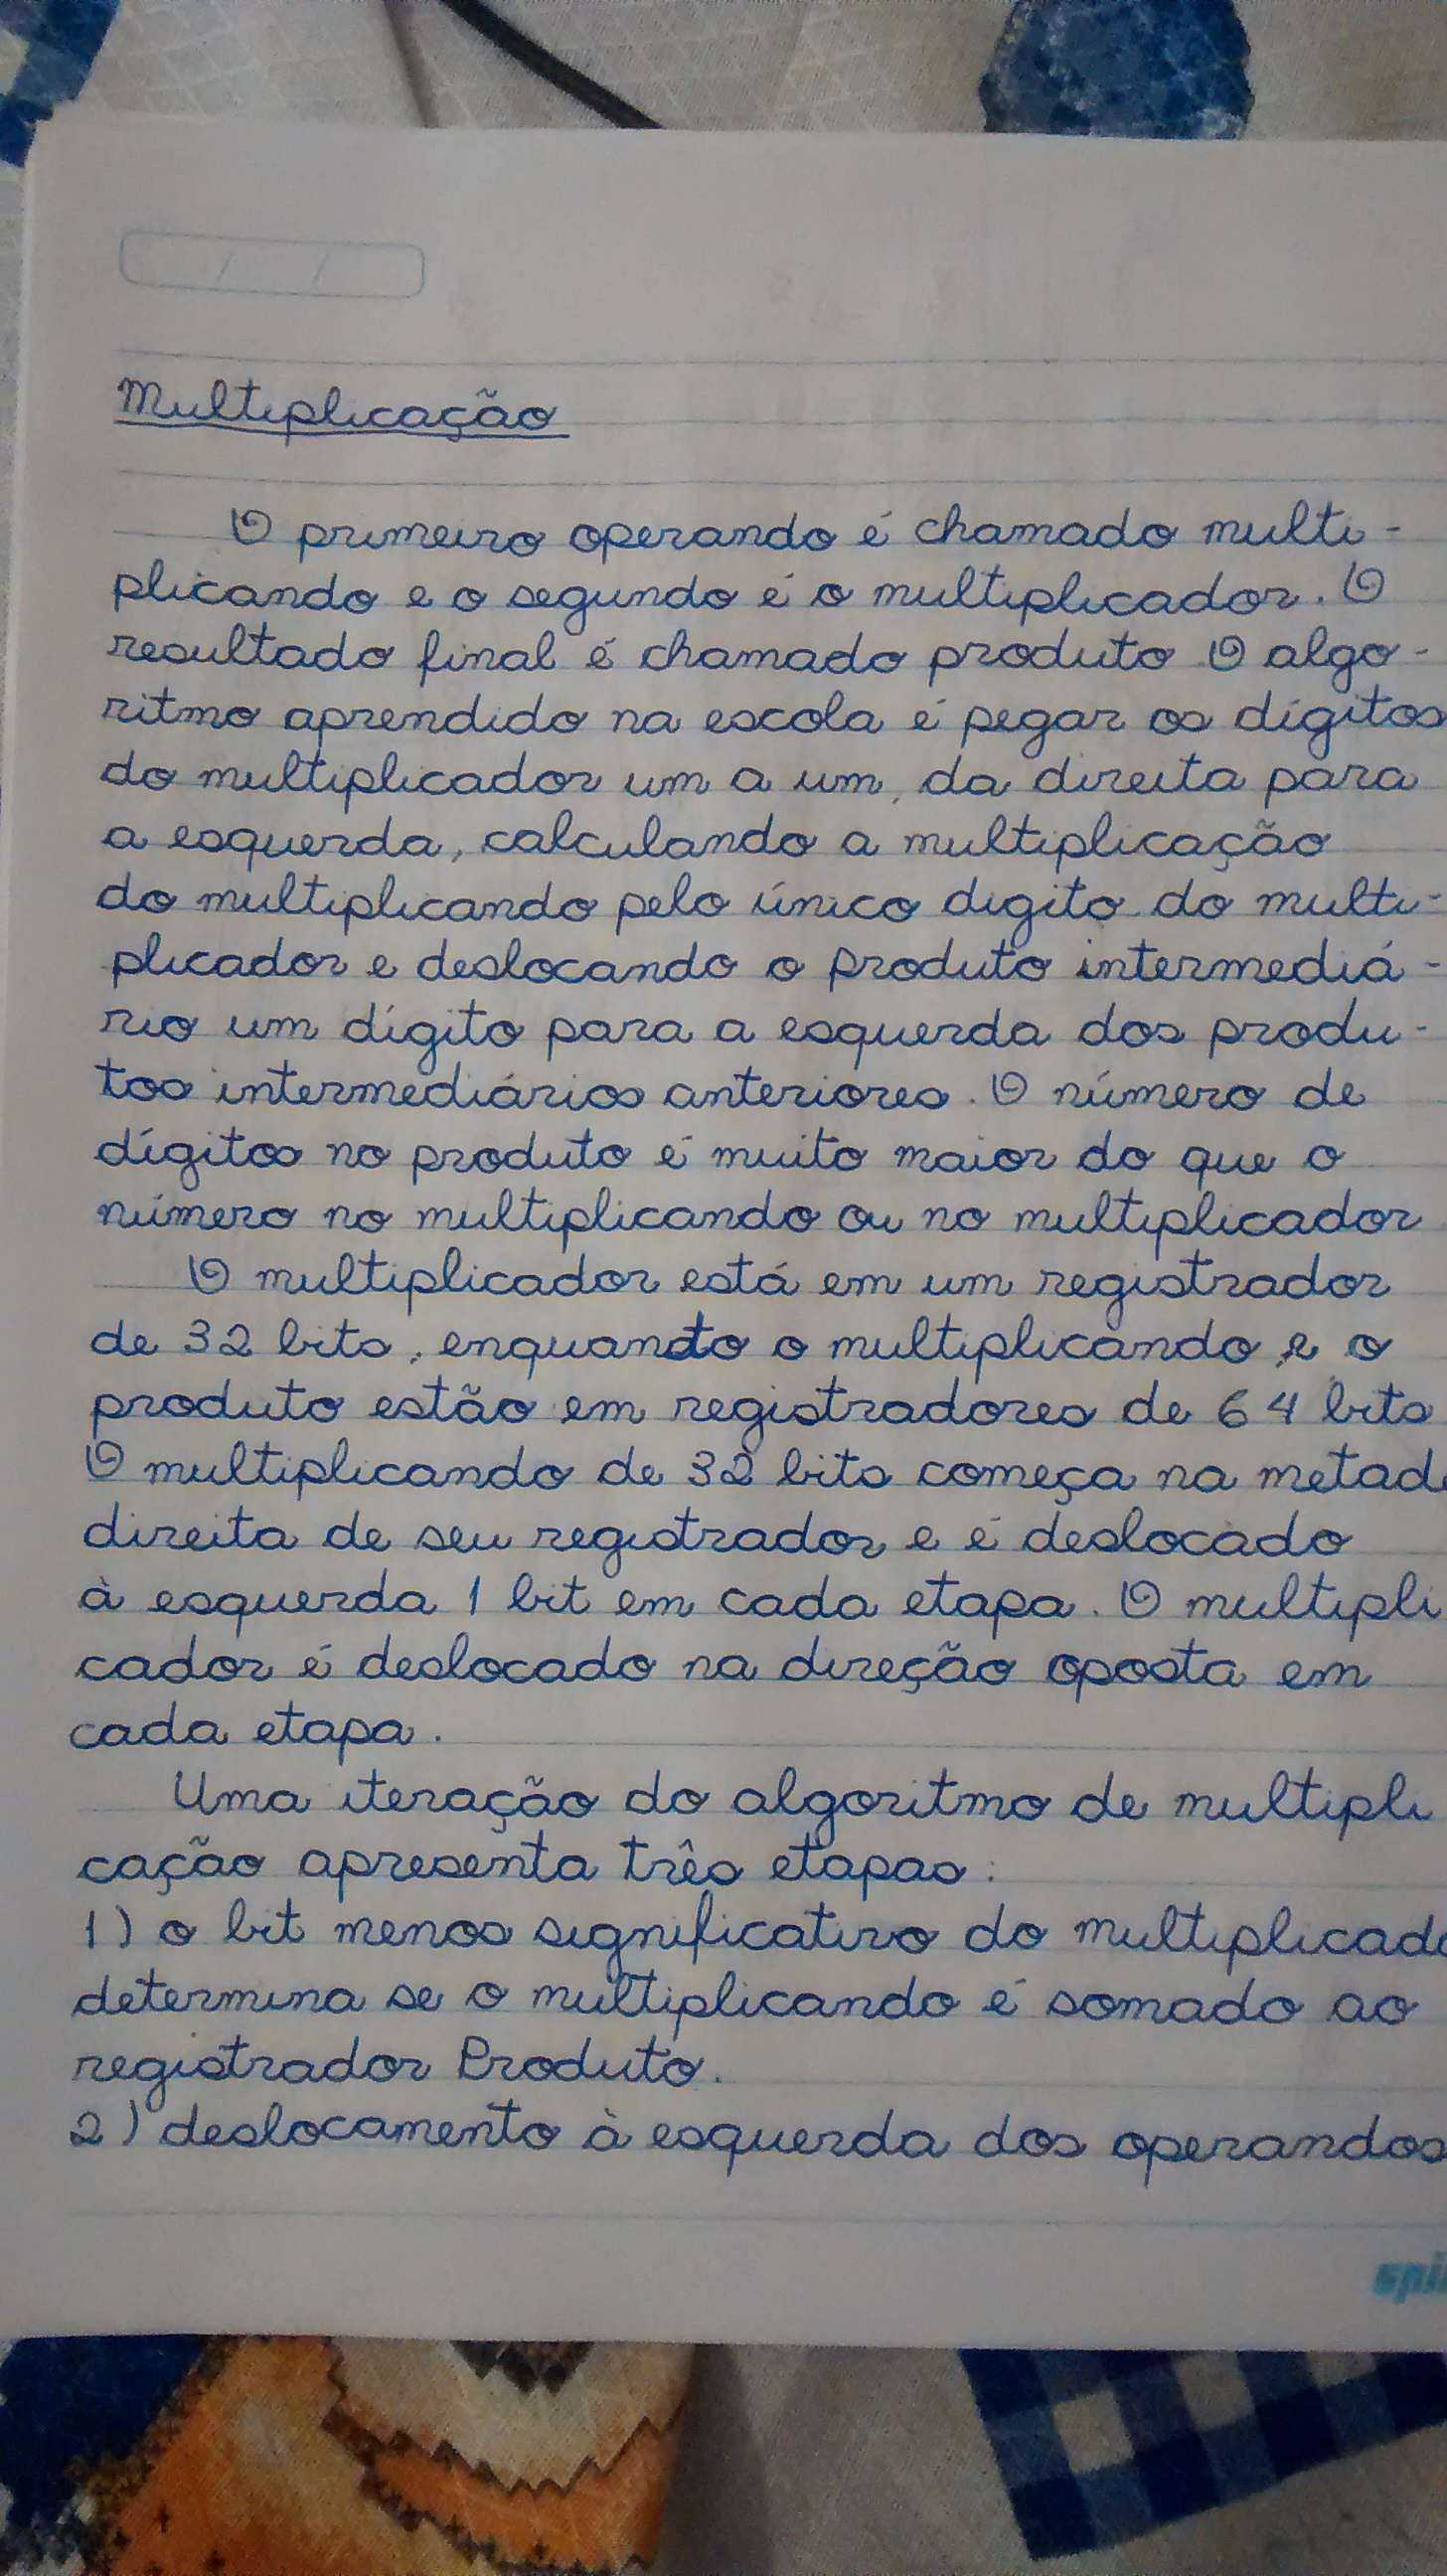 Multiplicação
O primeiro operando é chamado multi-
plicando e o segundo é o multiplicador. O
resultado final é chamado produto O algo-
ritmo aprendido na escola é pegar os dígitos
do multiplicador um a um, da direita para
a esquerda, calculando a multiplicação
do multiplicando pelo único digito do multi-
plicador e deslocando o produto intermediá-
rio um dígito para a esquerda dos produ-
tos intermediários anteriores. O número de
dígitos no produto é muito maior do que o
número no multiplicando ou no multiplicador
O multiplicador está em um registrador
de 32 bits, enquanto o multiplicando e o
produto estão em registradores de 64 bits
O multiplicando de 32 bits começa na metad
direita de seu registrador e é deslocado
à esquerda 1 bit em cada etapa. O multipli
cador é deslocado na direção oposta em
cada etapa.
Uma iteração do algoritmo de multipli
cação apresenta três etapas:
1) o bit menos significativo do multiplicado
determina se o multiplicando é somado ao
registrador Produto.
2) deslocamento à esquerda dos operandos